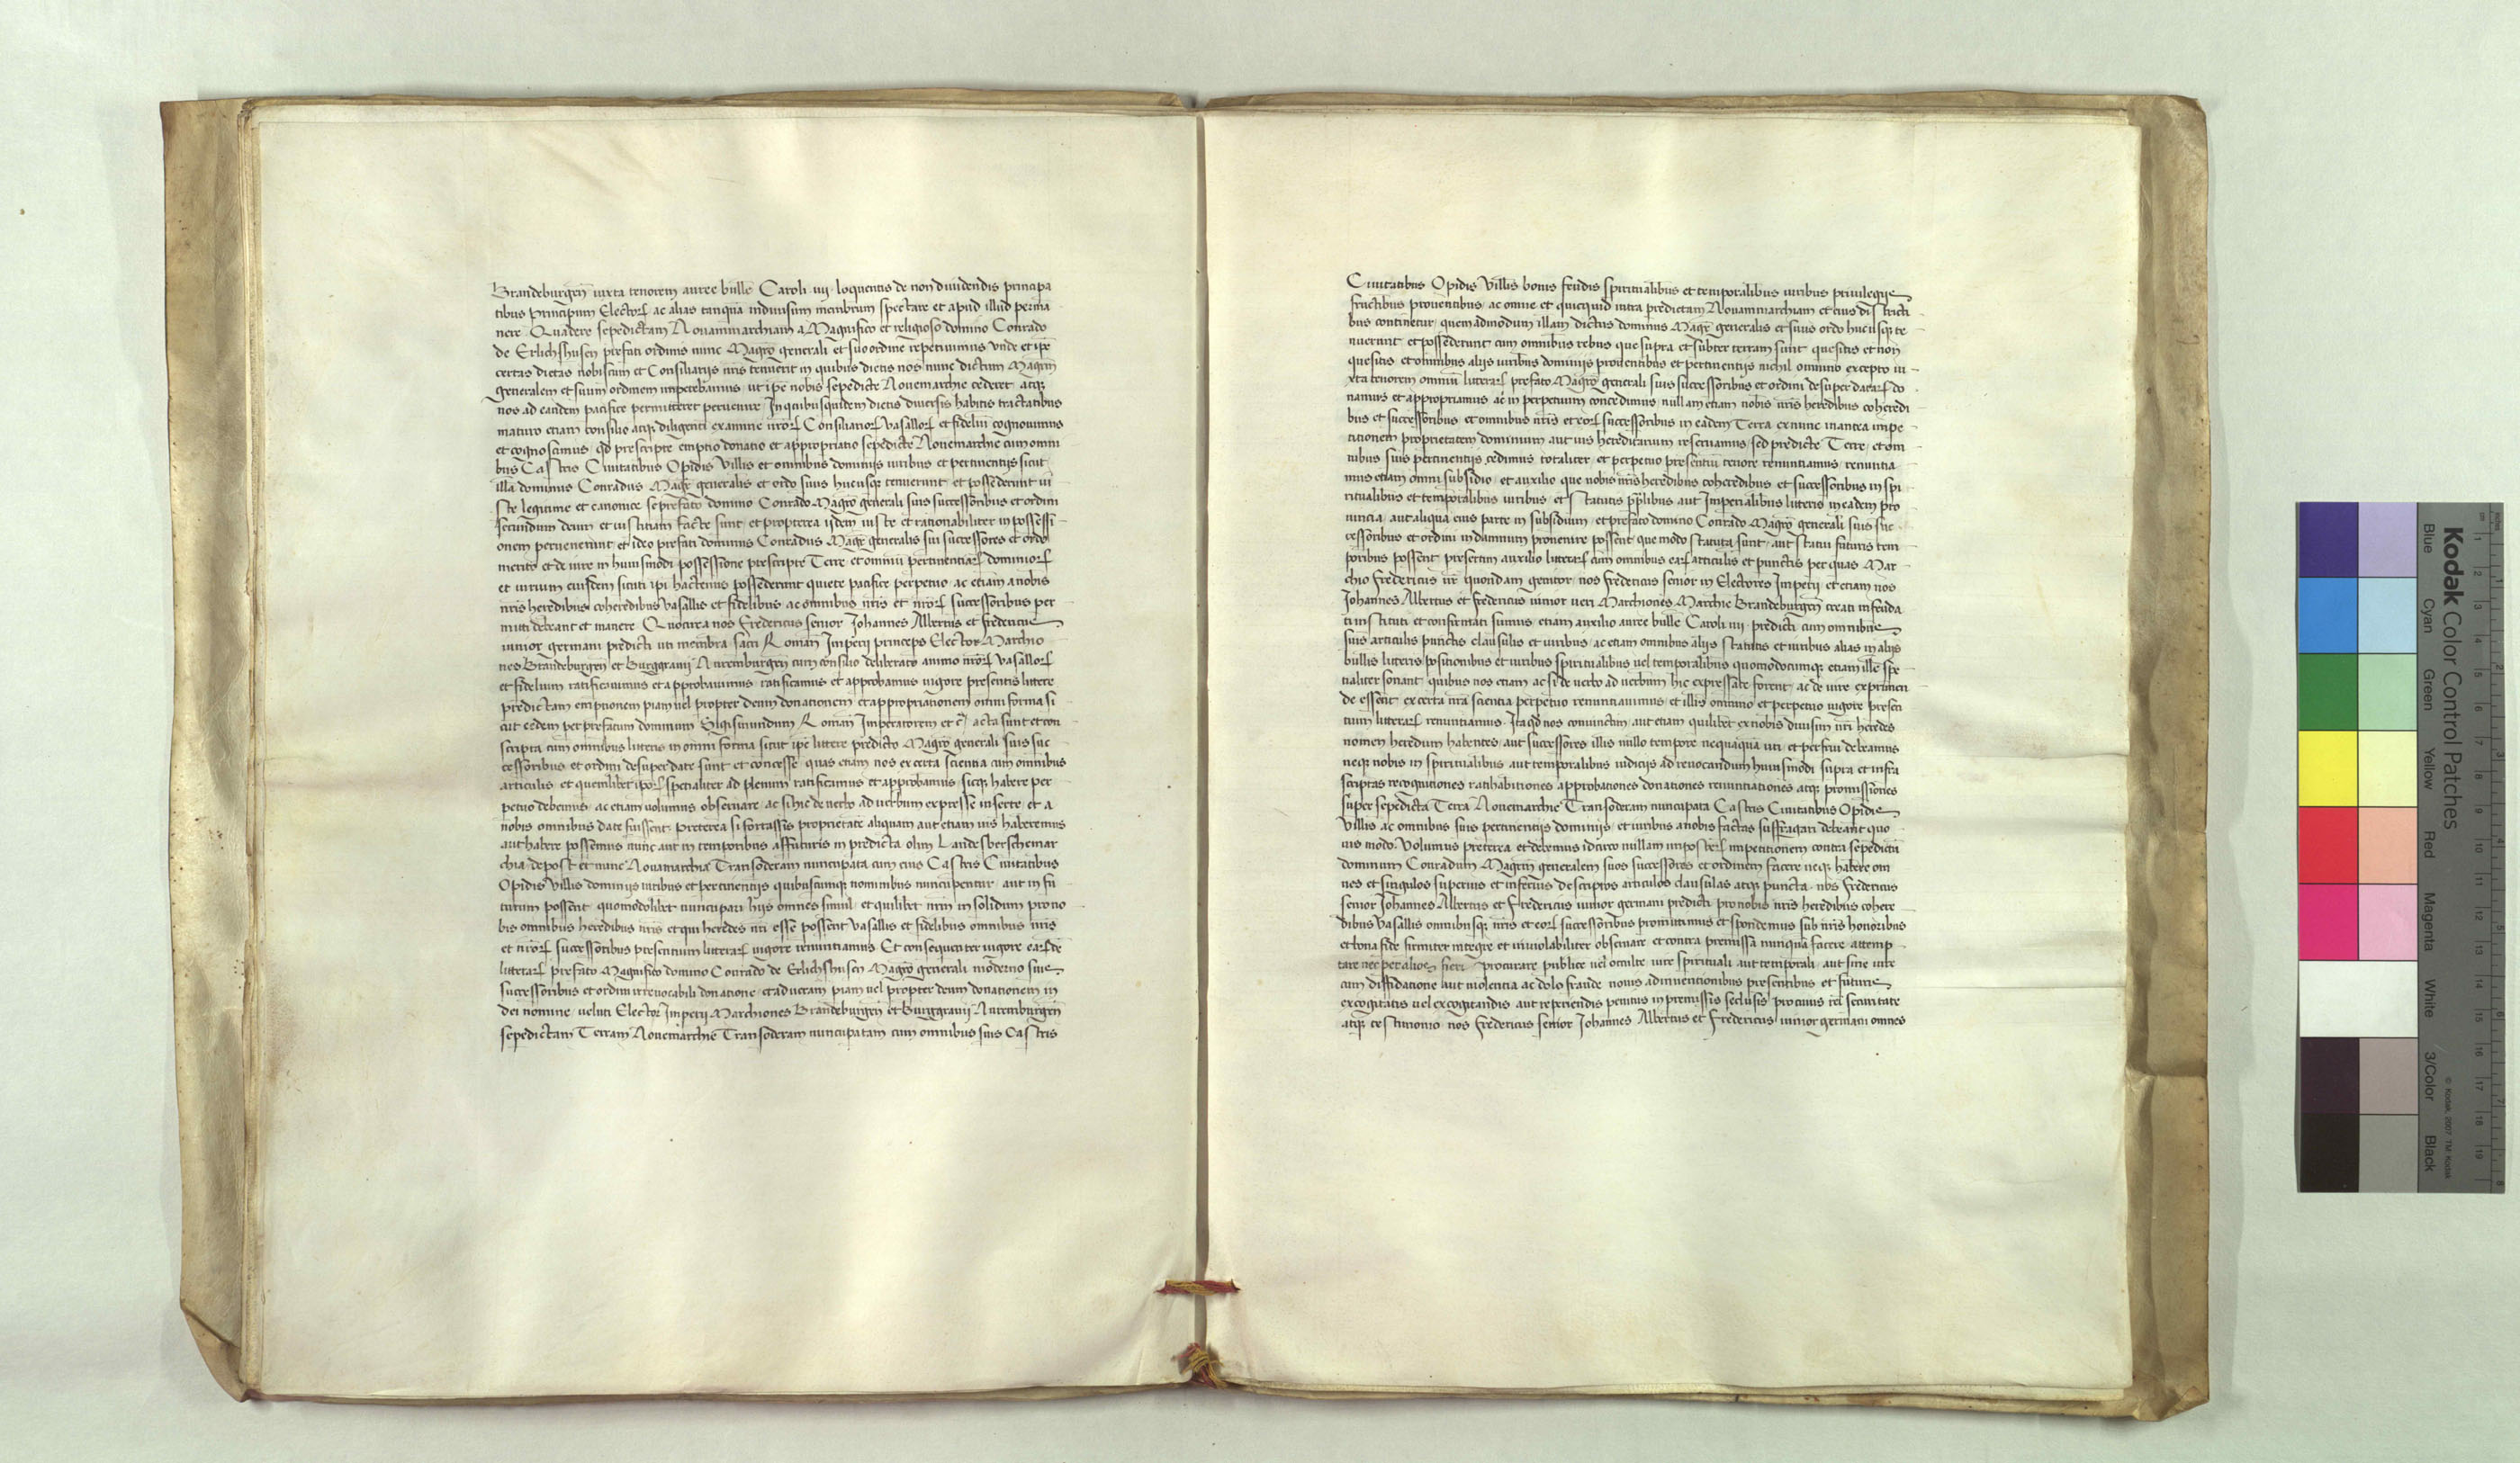 Brandeburgen̄ iuxta tenorem auree bulle Caroli iiij loquentis de non diuidendis principa
tibus principum Electorꝝ ac alias tanquā indiuisum membrum spectare et apud illud perma
nere Quadere sepedictam Nouammarchiam a Magnifico et religioso domino Conrado
de Erlichshusen prefati ordinis nunc Magr̄o generali et suo ordine repetiuimus vnde et ip̄e
certas dietas nobiscum et Consiliarijs nr̄is tenuerit in quibus dietis nos nunc dictum Magr̄m
generalem et suum ordinem impetebamus ut ip̄e nobis sepedicte Nouemarchie cederet atqꝫ
nos ad eandem pacifice permitteret peruenire In quibusquidem dietis diuersis habitis tractatibus
maturo etiam consilio atqꝫ diligenti examine nr̄orꝝ Consiliariorꝝ vasallorꝝ et fideliū cognouimus
et cognoscimus qd̄ prescripte emptio donatio et appropriatio sepedicte Nouemarchie cum omni
bus Castris Ciuitatibus Opidis Villis et omnibus dominijs iuribus et pertinentijs sicut
illa dominus Conradus Magr̄ generalis et ordo suus hucusqꝫ tenuerunt et possederunt iu
ste legitime et canonice se prefato domino Conrado Magr̄o generali suis successoribus et ordini
secundum deum et iustitiam facte sunt et propterea ijdem iuste et rationabiliter in possessi
onem peruenerunt et ideo prefati dominus Conradus Magr̄ generalis sui successores et ordo
merito et de iure in huiusmodi possessione prescripte Terre et omniū pertinentiarꝝ dominiorꝝ
et iurium eiusdem sicuti ip̄i hactenus possederunt quiete pacifice perpetuo ac etiam a nobis
nr̄is heredibus coheredibus vasallis et fidelibus ac omnibus nr̄is et nr̄orꝝ successoribus per
mitti debeant et manere Quocirca nos Fredericus senior Johannes Albertus et Fredericus
iunior germani predicti uti membra sacri Roman̄ Imperij princeps Elector Marchio
nes Brandeburgen̄ et Burggrauij Nuremburgen̄ cum consilio deliberato animo nr̄orꝝ vasallorꝝ
et fidelium ratificauimus et approbauimus ratificamus et approbamus uigore presentis littere
predictam emptionem piam uel propter deum donationem et appropriationem omni forma si
cut eedem per prefatum dominum Sigismundum Roman̄ Imperatorem et c̄ acta sunt et con
scripta cum omnibus litteris in omni forma sicut ip̄e littere predicto Magr̄o generali suis suc
cessoribus et ordini desuper date sunt et concesse quas etiam nos ex certa scientia cum omnibus
articulis et quemlibet ip̄orꝝ specialiter ad plenum ratificamus et approbamus sicqꝫ habere per
petuo debemus ac etiam uolumus obseruare ac si hic de uerbo ad uerbum expresse inserte et a
nobis omnibus date fuissent Preterea si fortassis proprietatē aliquam aut etiam ius haberemus
aut habere possemus nunc aut in temporibus affuturis in predicta olim Landesberschemar
chia depost et nunc Nouamarchia Transoderam nuncupata cum eius Castris Ciuitatibus
Opidis Villis dominijs iuribus et pertinentijs quibuscumqꝫ nominibus nuncupentur aut in fu
turum possent quomodolibet nuncupari hijs omnes simul et quilibet nr̄m in solidum pro no
bis omnibus heredibus nr̄is et qui heredes nr̄i esse possent vasallis et fidelibus omnibus nr̄is
et nr̄orꝝ successoribus presentium litterarꝝ uigore renuntiamus Et consequenter uigore earꝝde
litterarꝝ prefato Magnifico domino Conrado de Erlichshusen Magr̄o generali moderno suis
successoribus et ordini irreuocabili donatione et ad ueram piam uel propter deum donationem in
dei nomine ueluti Elector Imperij Marchiones Brandeburgen̄ et Burggrauij Nuremburgen̄
sepedictam Terram Nouemarchie Transoderam nuncupatam cum omnibus suis Castris
Ciuitatibus Opidis Villis bonis feudis spiritualibus et temporalibus iuribus priuilegijs
fructibus prouentibus ac omne et quicquid intra predictam Nouammarchiam et eius districti
bus continetur quemadmodum illam dictus dominus Magr̄ generalis et suus ordo hucusqꝫ te
nuerunt et possederunt cum omnibus rebus que supra et subter terram sunt quesitis et non
quesitis et omnibus alijs iuribus dominijs prouentibus et pertinentijs nichil omnino excepto iu
xta tenorem omniū litterarꝝ prefato Magr̄o generali suis successoribus et ordini desuper datarꝝ do
namus et appropriamus ac in perpetuum concedimus nullam etiam nobis nr̄is heredibus coheredi
bus et successoribus et omnibus nr̄is et eorꝝ successoribus in eadem Terra ex nunc inantea impe
titionem proprietatem dominium aut ius hereditarium reseruamus sed predicte Terre et om
nibus suis pertinentijs cedimus totaliter et perpetuo presentiū tenore renuntiamus renuntia
mus etiam omni subsidio et auxilio que nobis nr̄is heredibus coheredibus et successoribus in spi
ritualibus et temporalibus iuribus et statutis pp̄libus aut Imperialibus litteris in eadem pro
uincia aut aliqua eius parte in subsidium et prefato domino Conrado Magr̄o generali suis suc
cessoribus et ordini in damnum prouenire possent que modo statuta sunt aut statui futuris tem
poribus possent presertim auxilio litterarꝝ cum omnibus earꝝ articulis et punctis per quas Mar
chio Fredericus nr̄ quondam genitor nos Fredericus senior in Electores Imperij et etiam nos
Johannes Albertus et Fredericus iunior ueri Marchiones Marchie Brandeburgen̄ creati infeuda
ti instituti et confirmati sumus etiam auxilio auree bulle Caroli iiij predicti cum omnibus
suis articulis punctis clausulis et iuribus ac etiam omnibus alijs statutis et iuribus alias in alijs
bullis litteris positionibus et iuribus spiritualibus uel temporalibus quomodocumqꝫ etiam ille spe
cialiter sonant quibus nos etiam ac si de uerbo ad uerbum hic expressate forent ac de iure exprimen
de essent ex certa nr̄a scientia perpetuo renuntiauimus et illis omnino et perpetuo uigore presen
tium litterarꝝ renuntiamus Ita qd̄ nos coniunctim aut etiam quilibet ex nobis diuisim nr̄i heredes
nomen heredum habentes aut successores illis nullo tempore nequaquā uti et perfrui debeamus
neqꝫ nobis in spiritualibus aut temporalibus iudicijs ad reuocandum huiusmodi supra et infra
scriptas recognitiones ratihabitiones approbationes donationes renuntiationes atqꝫ promissiones
super sepedicta Terra Nouemarchie Transoderam nuncupata Castris Ciuitatibus Opidis
Villis ac omnibus suis pertinentijs dominijs et iuribus a nobis factas suffragari debeant quo
uis modo Volumus preterea et debemus idcirco nullam imposterꝝ impetitionem contra sepedictū
dominum Conradum Magr̄m generalem suos successores et ordinem facere neqꝫ habere om
nes et singulos superius et inferius descriptos articulos clausulas atqꝫ puncta nos Fredericus
senior Johannes Albertus et Fredericus iunior germani predicti pro nobis nr̄is heredibus cohere
dibus vasallis omnibusqꝫ nr̄is et eorꝝ successoribus promittimus et spondemus sub nr̄is honoribus
et bona fide firmiter integre et inuiolabiliter obseruare et contra premissa nunquā facere attemp
tare nec per alios fieri procurare publice uel occulte iure spirituali aut temporali aut sine iure
cum diffidatione aut uiolentia ac dolo fraude nouis adinuentionibus presentibus et futuris
excogitatis uel excogitandis aut reperiendis penitus in premissis seclusis Pro cuius rei securitate
atqꝫ testimonio nos Fredericus senior Johannes Albertus et Fredericus iunior germani omnes
Kodak Color Control Patches
Blue Cyan Green Yellow Red Magenta White 3/Color Black
© Kodak, 2007 TM: Kodak